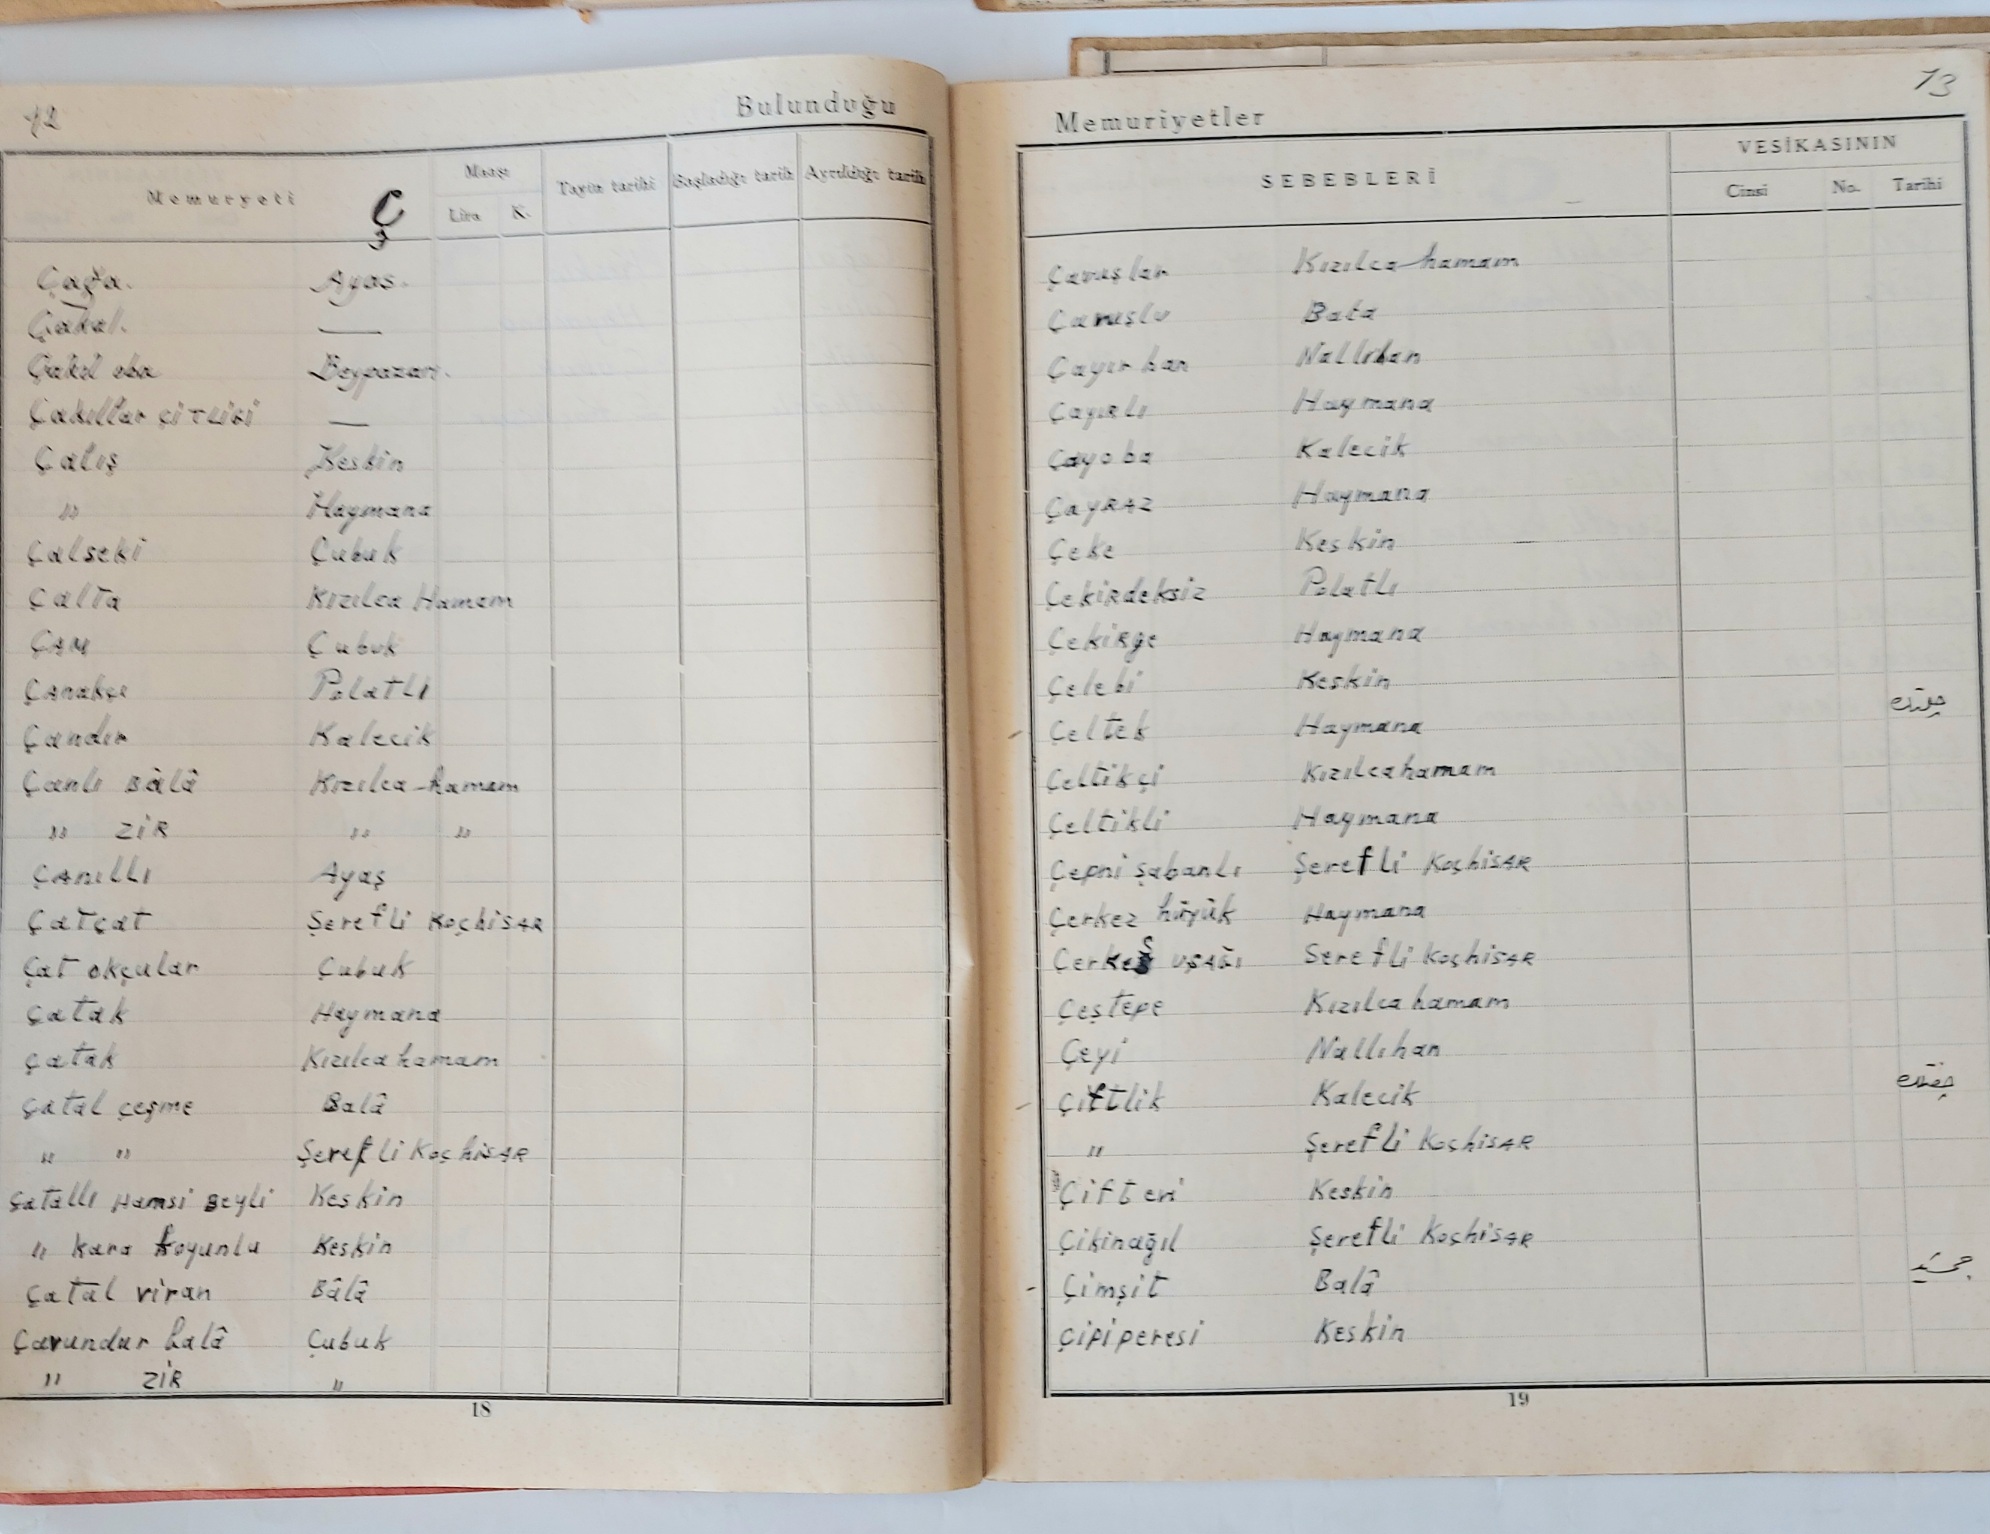 12
Bulunduğu
Memuryeti Ç Maaşı Lira K. Tayin tarihi Başladığı tarih Ayrıldığı tarih
Çağa. Ayas.
Çakal. —
Çakıl oba Beypazarı.
Çakıllar çitliği —
Çalış Keskin
" Haymana
Çalseki Çubuk
Çalta Kızılca Hamam
ÇAM Çubuk
Çanakçı Polatlı
Çandır Kalecik
Çanlı Bâlâ Kızılca-hamam
" ZİR " "
ÇANıllı Ayaş
Çatçat Şerefli KoçhisAR
Çat okçular Çubuk
Çatak Haymana
Çatak Kızılcahamam
Çatal çeşme Balâ
" " Şerefli KoçhisAR
Çatallı Hamsi Beyli Keskin
" kara koyunlu Keskin
Çatal viran Bâlâ
Çavundur balâ Çubuk
" ZİR "
18
13
Memuriyetler
SEBEBLERİ VESİKASININ
Cinsi No. Tarihi
Çavuşlar Kızılca-hamam
Çavuşlu Bala
Çayır han Nallıhan
Çayırlı Haymana
Çayoba Kalecik
ÇayRAZ Haymana
Çeke Keskin
Çekirdeksiz Polatlı
Çekirge Haymana
Çelebi Keskin
Çeltek Haymana
Çeltikçi Kızılcahamam
Çeltikli Haymana
Çepni şabanlı Şerefli KoçhisAR
Çerkez hüyük Haymana
Çerkeş uşağı Serefli KoçhisAR
Çeştepe Kızılcahamam
Çeyi Nallıhan
Çiftlik Kalecik
" Şerefli KoçhisAR
Çifteri Keskin
Çikinağıl Şerefli KoçhisAR
Çimşit Balâ
Çipiperesi Keskin
19